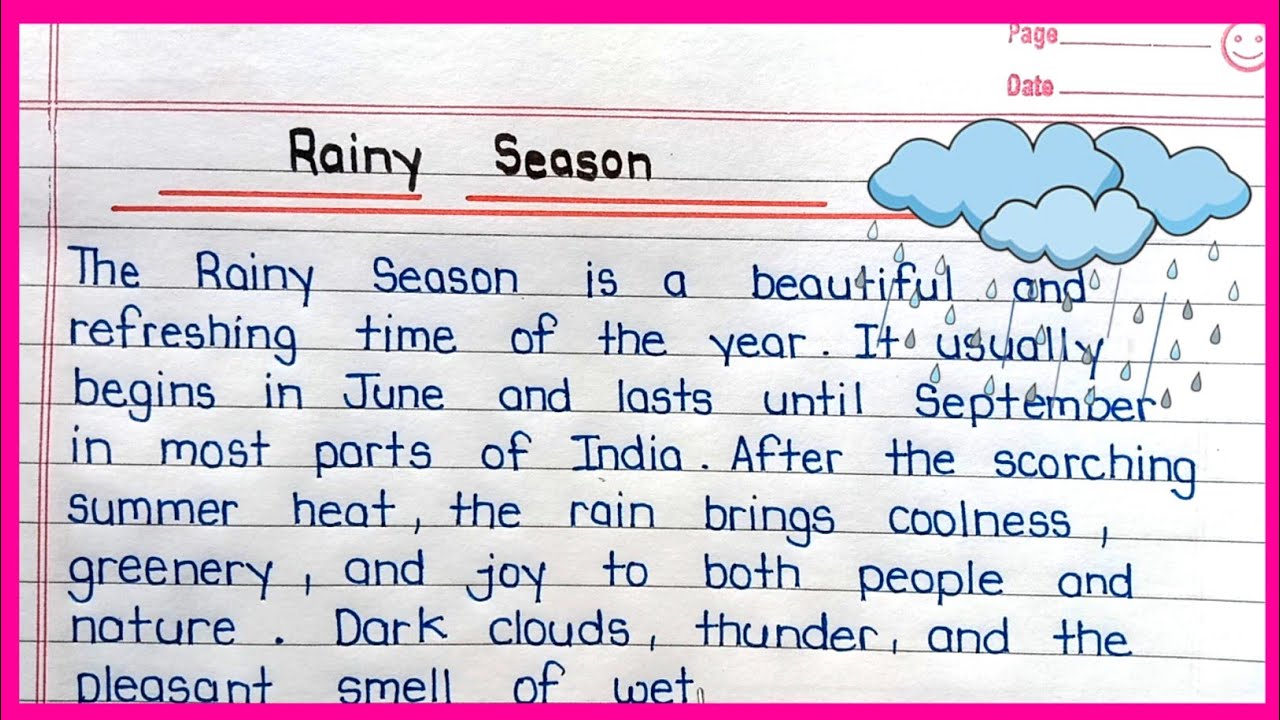 Page
Date
Rainy Season
The Rainy Season is a beautiful and
refreshing time of the year. It usually
begins in June and lasts until September
in most parts of India. After the scorching
summer heat, the rain brings coolness,
greenery, and joy to both people and
nature. Dark clouds, thunder, and the
pleasant smell of wet